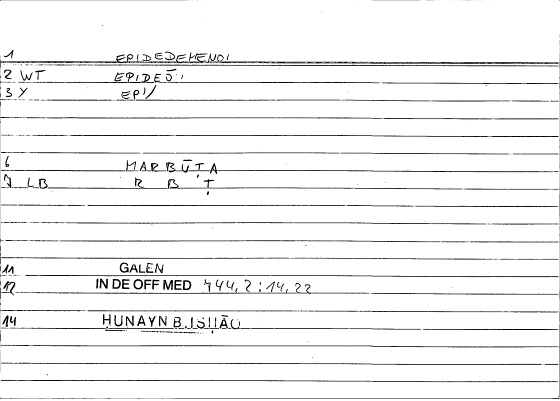 1 EPIDEDEMENOI
2 WT EPIDEŌ
3 Y EPI/
6 MARBŪṬA
7 LB R B Ṭ
11 GALEN
12 IN DE OFF MED 744,2:14,22
14 HUNAYN B.